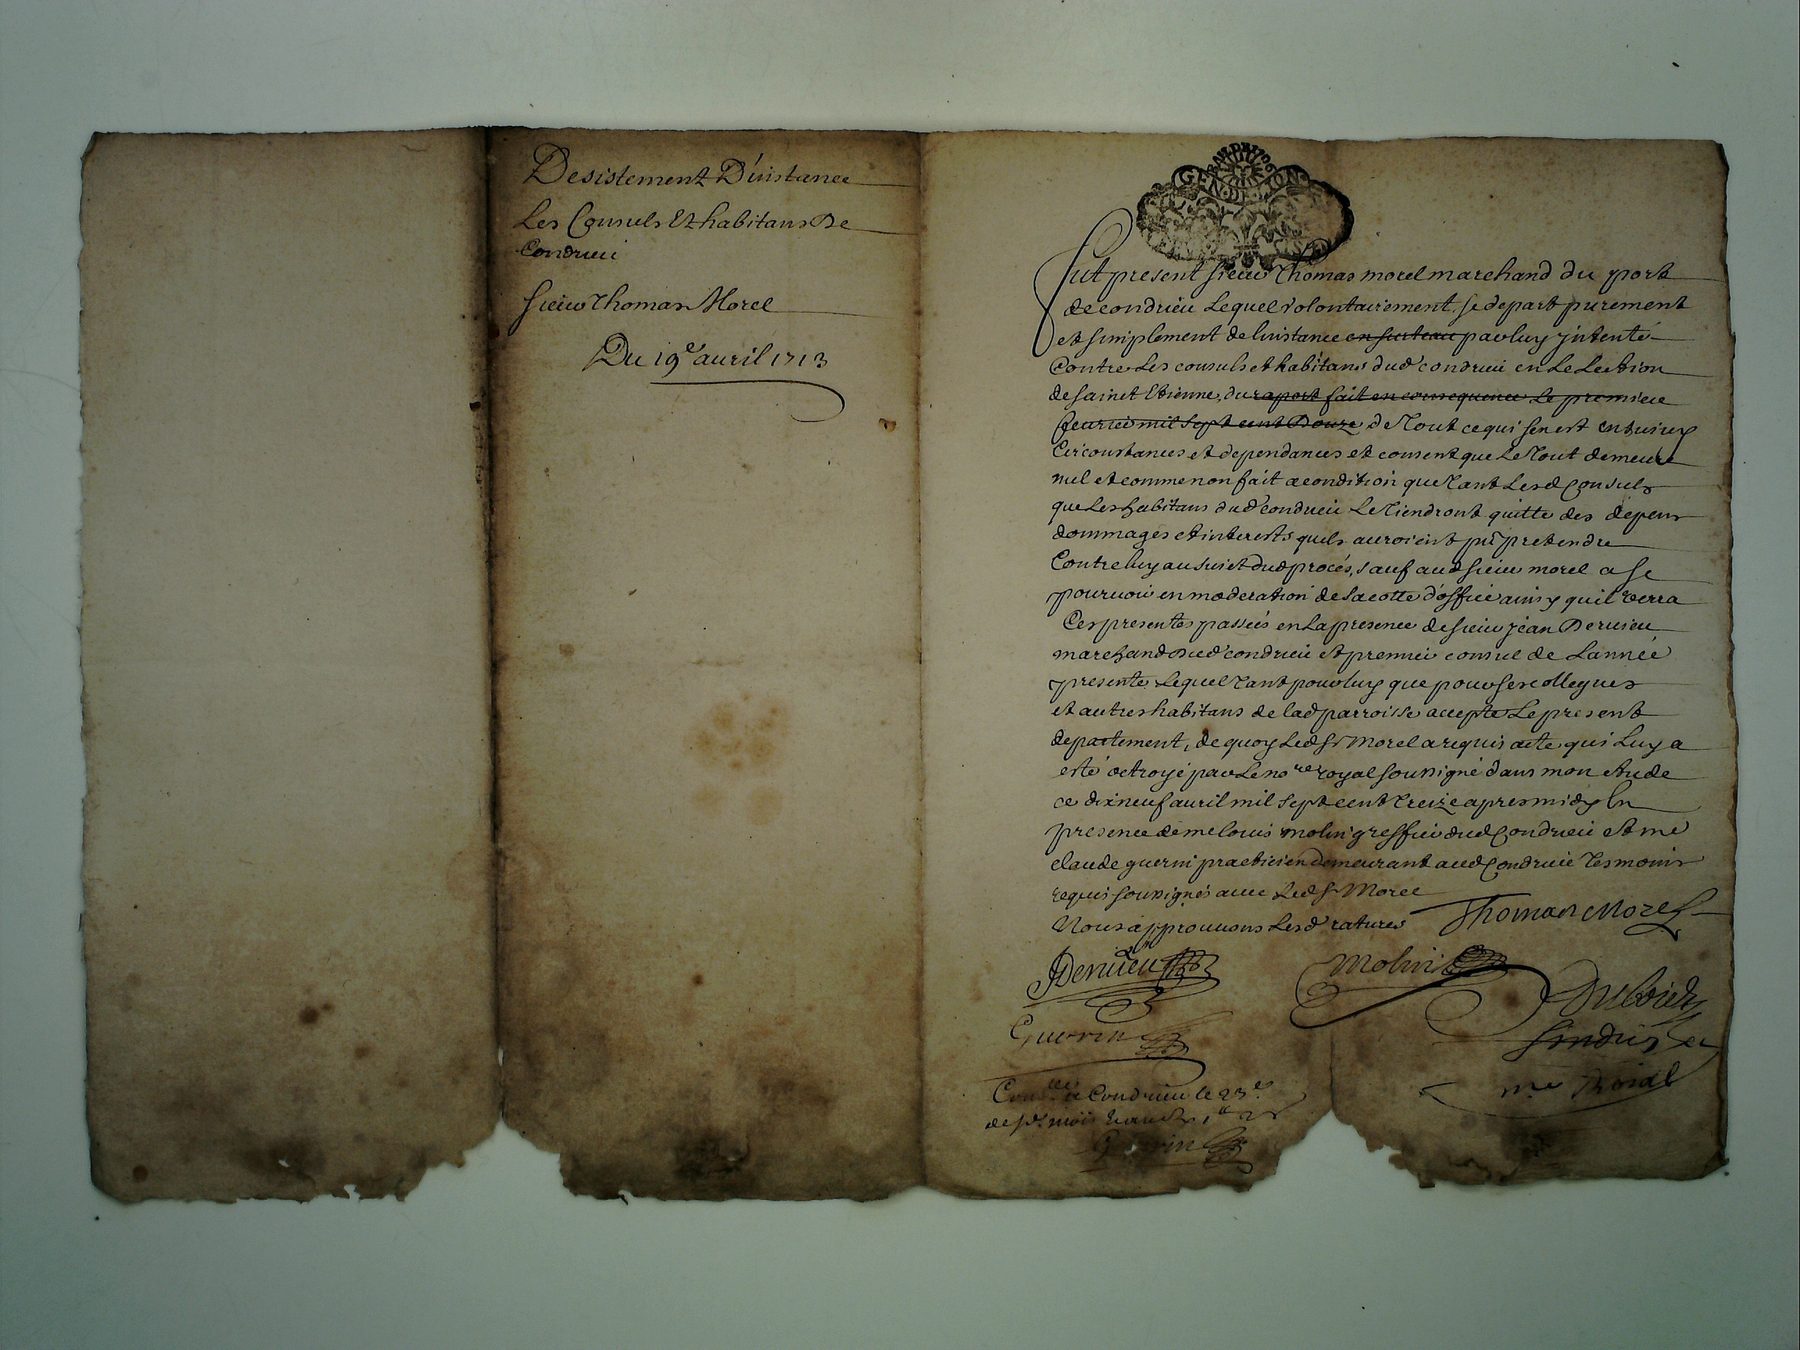 Desistement D'instance
Les Consuls Et habitans De
Condrieu
Sieur Thomas Morel
Du 19e auril 1713
GEN DE LYON
fut present sieur Thomas morel marchand du port
de condrieu Lequel volontairement se depart purement
et simplement de linstance en suiteau par luy jntenté
Contre Les consuls et habitans dud condrieu en Lelection
de sainct Etienne, du raport fait en consequence Le premieur
feurier mil sept cent Douze de Tout ce qui sen est ensuiuy
Circonstances et dependances et consent que Le Tout demeure
nul et comme non fait a condition que Tant Lesd Consuls
que Les habitans dud condrieu Le Tiendront quitte des depens
dommages et interests quils auroient pu pretendre
Contre luy au suiet dud procés, sauf aud sieur morel a se
pouruoir en moderation de sa cotte d'office ainsy quil verra
Ces presentes passées en La presence de sieur jean Deruieu
marchand dud condrieu et premier consul de Lannée
presente Lequel Tant pour luy que pour ses collegues
et autres habitans de lad parroisse accepte Le present
departement, de quoy Led Sr Morel a requis acte qui Luy a
esté octroyé par Le nore royal soussigné dans mon etude
ce dixneuf auril mil sept cent Treize apres midy En
presence de me louis molin greffier dud Condrieu et me
claude guerin practicien demeurant aud Condrieu Tesmoins
requis soussignés auec Led Sr Morel
Nous approuuons Lesd ratures Thomas Morel
Deruieu Molin
Dubois
Guerin
nre Roial
Conllé a Condrieu le 23e
de sd mois
Guerin